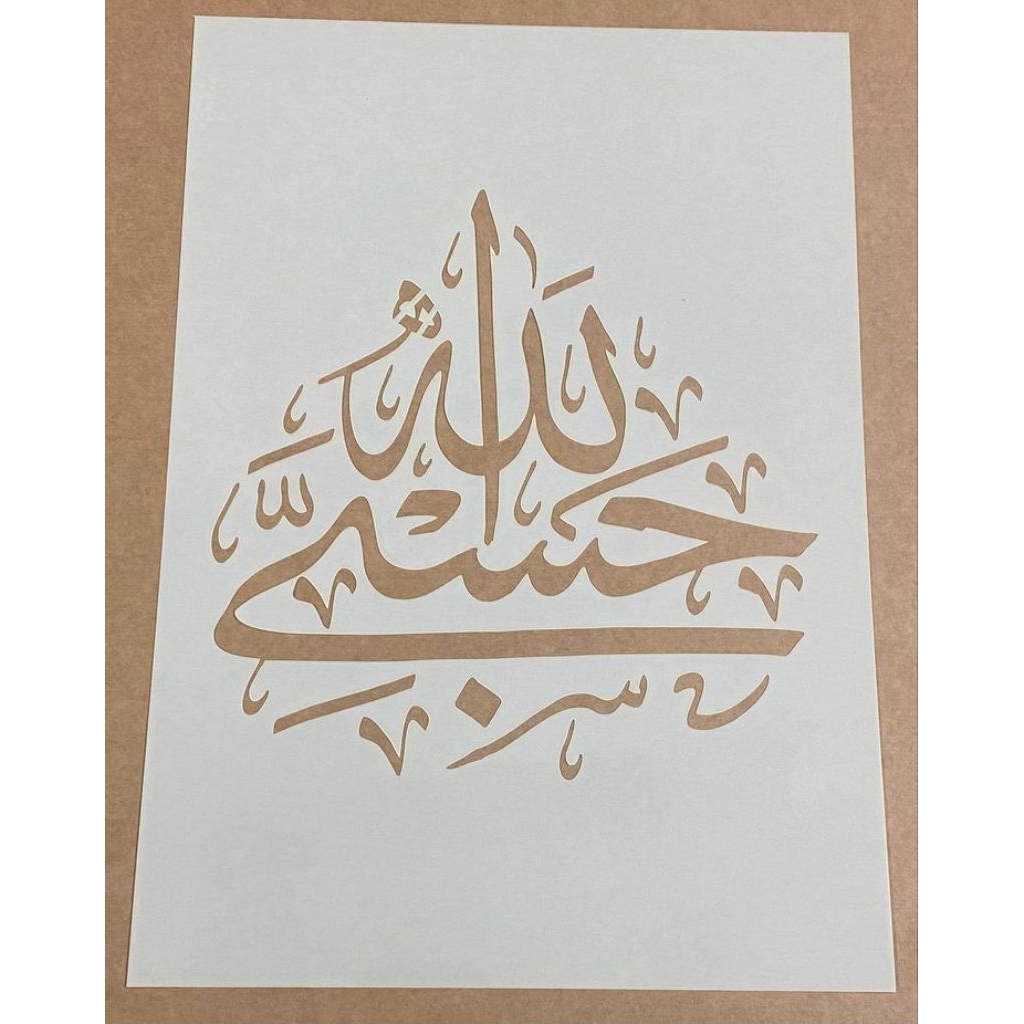 حَسْبِيَ اللهُ